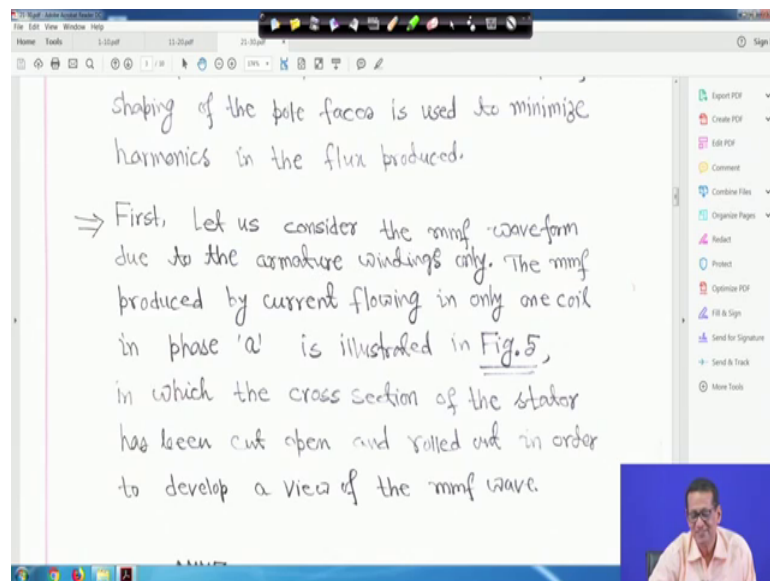 21-30.pdf - Adobe Acrobat Reader DC
File Edit View Window Help
Home Tools 1-10.pdf 11-20.pdf 21-30.pdf × Sign
shaping of the pole faces is used to minimize
harmonics in the flux produced.
⇒ First, Let us consider the mmf waveform
due to the armature windings only. The mmf
produced by current flowing in only one coil
in phase 'a' is illustrated in Fig.5,
in which the cross section of the stator
has been cut open and rolled out in order
to develop a view of the mmf wave.
Export PDF
Create PDF
Edit PDF
Comment
Combine Files
Organize Pages
Redact
Protect
Optimize PDF
Fill & Sign
Send for Signature
Send & Track
More Tools